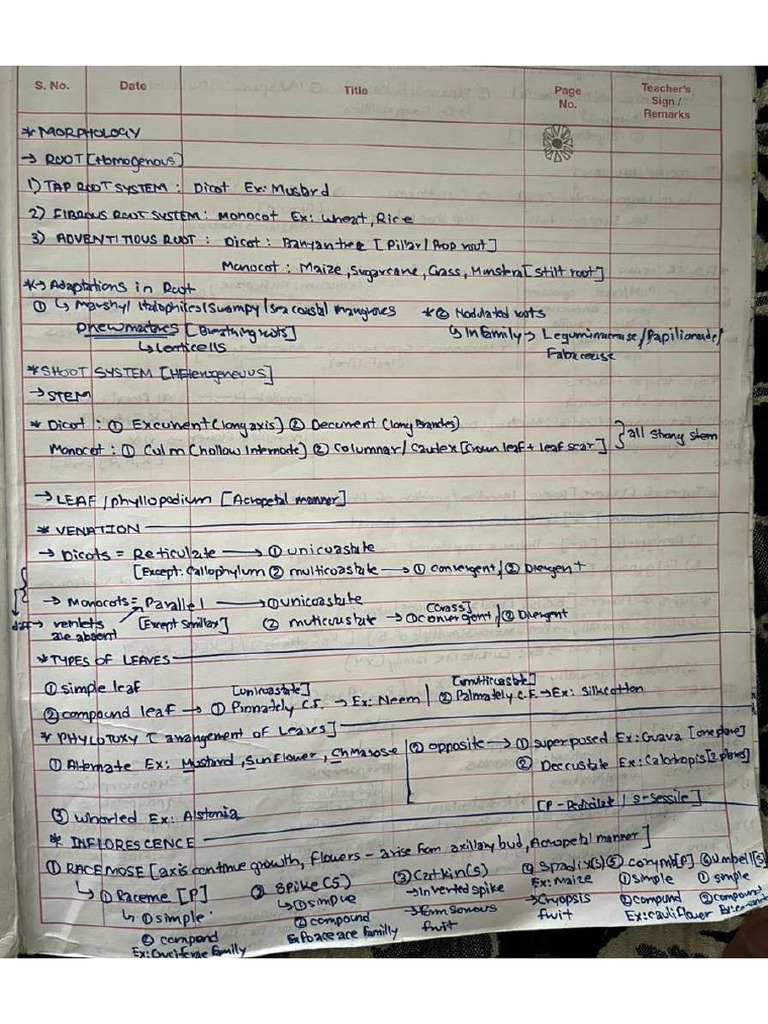 S. No. Date Title Page No. Teacher's Sign / Remarks
* MORPHOLOGY
→ ROOT [Homogenous]
1) TAP ROOT SYSTEM : Dicot Ex: Mustard
2) FIBROUS ROOT SYSTEM : Monocot Ex: Wheat, Rice
3) ADVENTITIOUS ROOT : Dicot : Banyan tree [Pillar/Prop root]
Monocot : Maize, Sugarcane, Grass, Monstera [stilt root]
*→ Adaptations in Root
① ↳ Marshy/Halophites/Swampy/Sea coastal mangroves *② Nodulated roots
Pnewmatores [Breathing roots] ↳ In family → Leguminaceae/Papilionade/
↳ lenticells Fabaceuse
* SHOOT SYSTEM [HEterogeneous]
→ STEM
* Dicot : ① Excunent (long axis) ② Decument (long Branches)
Monocot : ① Culm (hollow Internode) ② Columnar/Caudex [Crown leaf + leaf scar] } all strong stem
→ LEAF/phyllopodium [Acropetal manner]
* VENATION
→ Dicots = Reticulate → ① unicoastate
[Except: Callophylum ② multicoastate → ① convergent/② Divergent
→ Monocots = Parallel → ① unicoastate
diff → veinlets are absent [Except Smillax] ② muticoustate → ① convergent [Grass]/② Divergent
* TYPES OF LEAVES
① simple leaf [unicoastate] [multicoastate]
② compound leaf → ① Pinnately C.F. → Ex: Neem | ② Palmately C.F. → Ex: Silkcotton
* PHYLOTUXY [arrangement of leaves]
① Alternate Ex: Mustard, Sunflower, Chinarose ② opposite → ① superposed Ex: Guava [one plane]
② Deccustate Ex: Calotropis [2 planes]
③ whorled Ex: Alstonia
[P - Pedicilate | S - Sessile]
* INFLORESCENCE
① RACEMOSE [axis continue growth, flowers - arise from axillary bud, Acropetal manner]
↳ ① Raceme [P] ② Spike (S) ③ Catkin (S) ④ Spadix (S) ⑤ corymb [P] ⑥ Umbell [S]
↳ ① simple ↳ ① simple → Inverted spike Ex: Maize ① simple ① simple
② compound ② compound fruit → Cryopsis fruit ② compund ② compound
Ex: Cruciferae familly Ex: Poaceace familly Ex: cauliflower